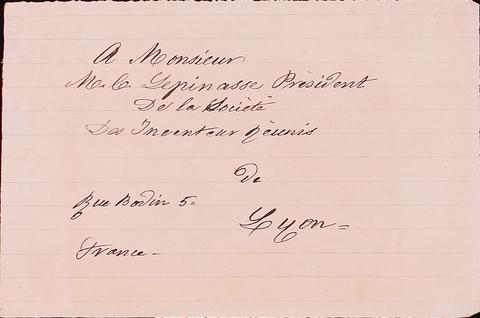 A Monsieur
M. C. Lepinasse Président
De la Société
Des Inventeur Réunis
de
Rue Bodin 5=
Lyon=
France-